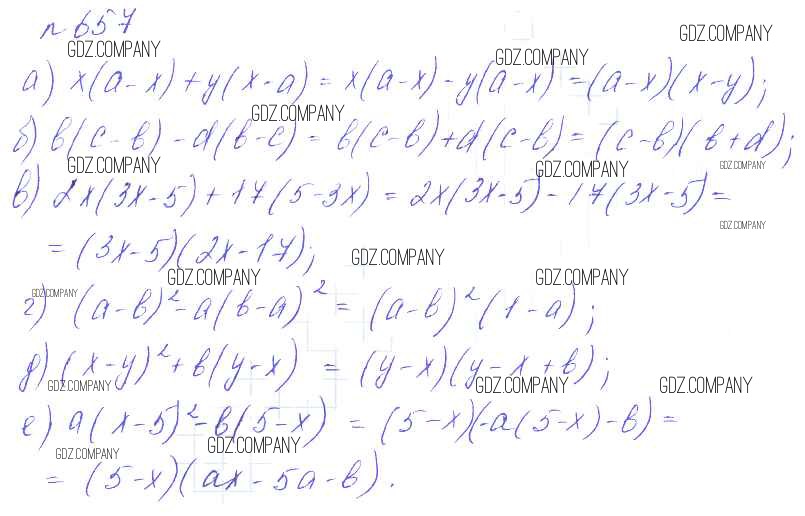 n 657
GDZ.COMPANY GDZ.COMPANY GDZ.COMPANY
а) x(a-x)+y(x-a) = x(a-x)-y(a-x) =(a-x)(x-y);
GDZ.COMPANY
б) b(c-b)-d(b-c) = b(c-b)+d(c-b) = (c-b)(b+d);
GDZ.COMPANY GDZ.COMPANY GDZ.COMPANY
в) 2x(3x-5)+17(5-3x) = 2x(3x-5)-17(3x-5) =
GDZ.COMPANY
= (3x-5)(2x-17);
GDZ.COMPANY
GDZ.COMPANY GDZ.COMPANY GDZ.COMPANY
г) (a-b)²-a(b-a)² = (a-b)²(1-a);
д) (x-y)²+b(y-x) = (y-x)(y-x+b);
GDZ.COMPANY GDZ.COMPANY GDZ.COMPANY
е) a(x-5)²-b(5-x) = (5-x)(-a(5-x)-b) =
GDZ.COMPANY GDZ.COMPANY
= (5-x)(ax-5a-b).